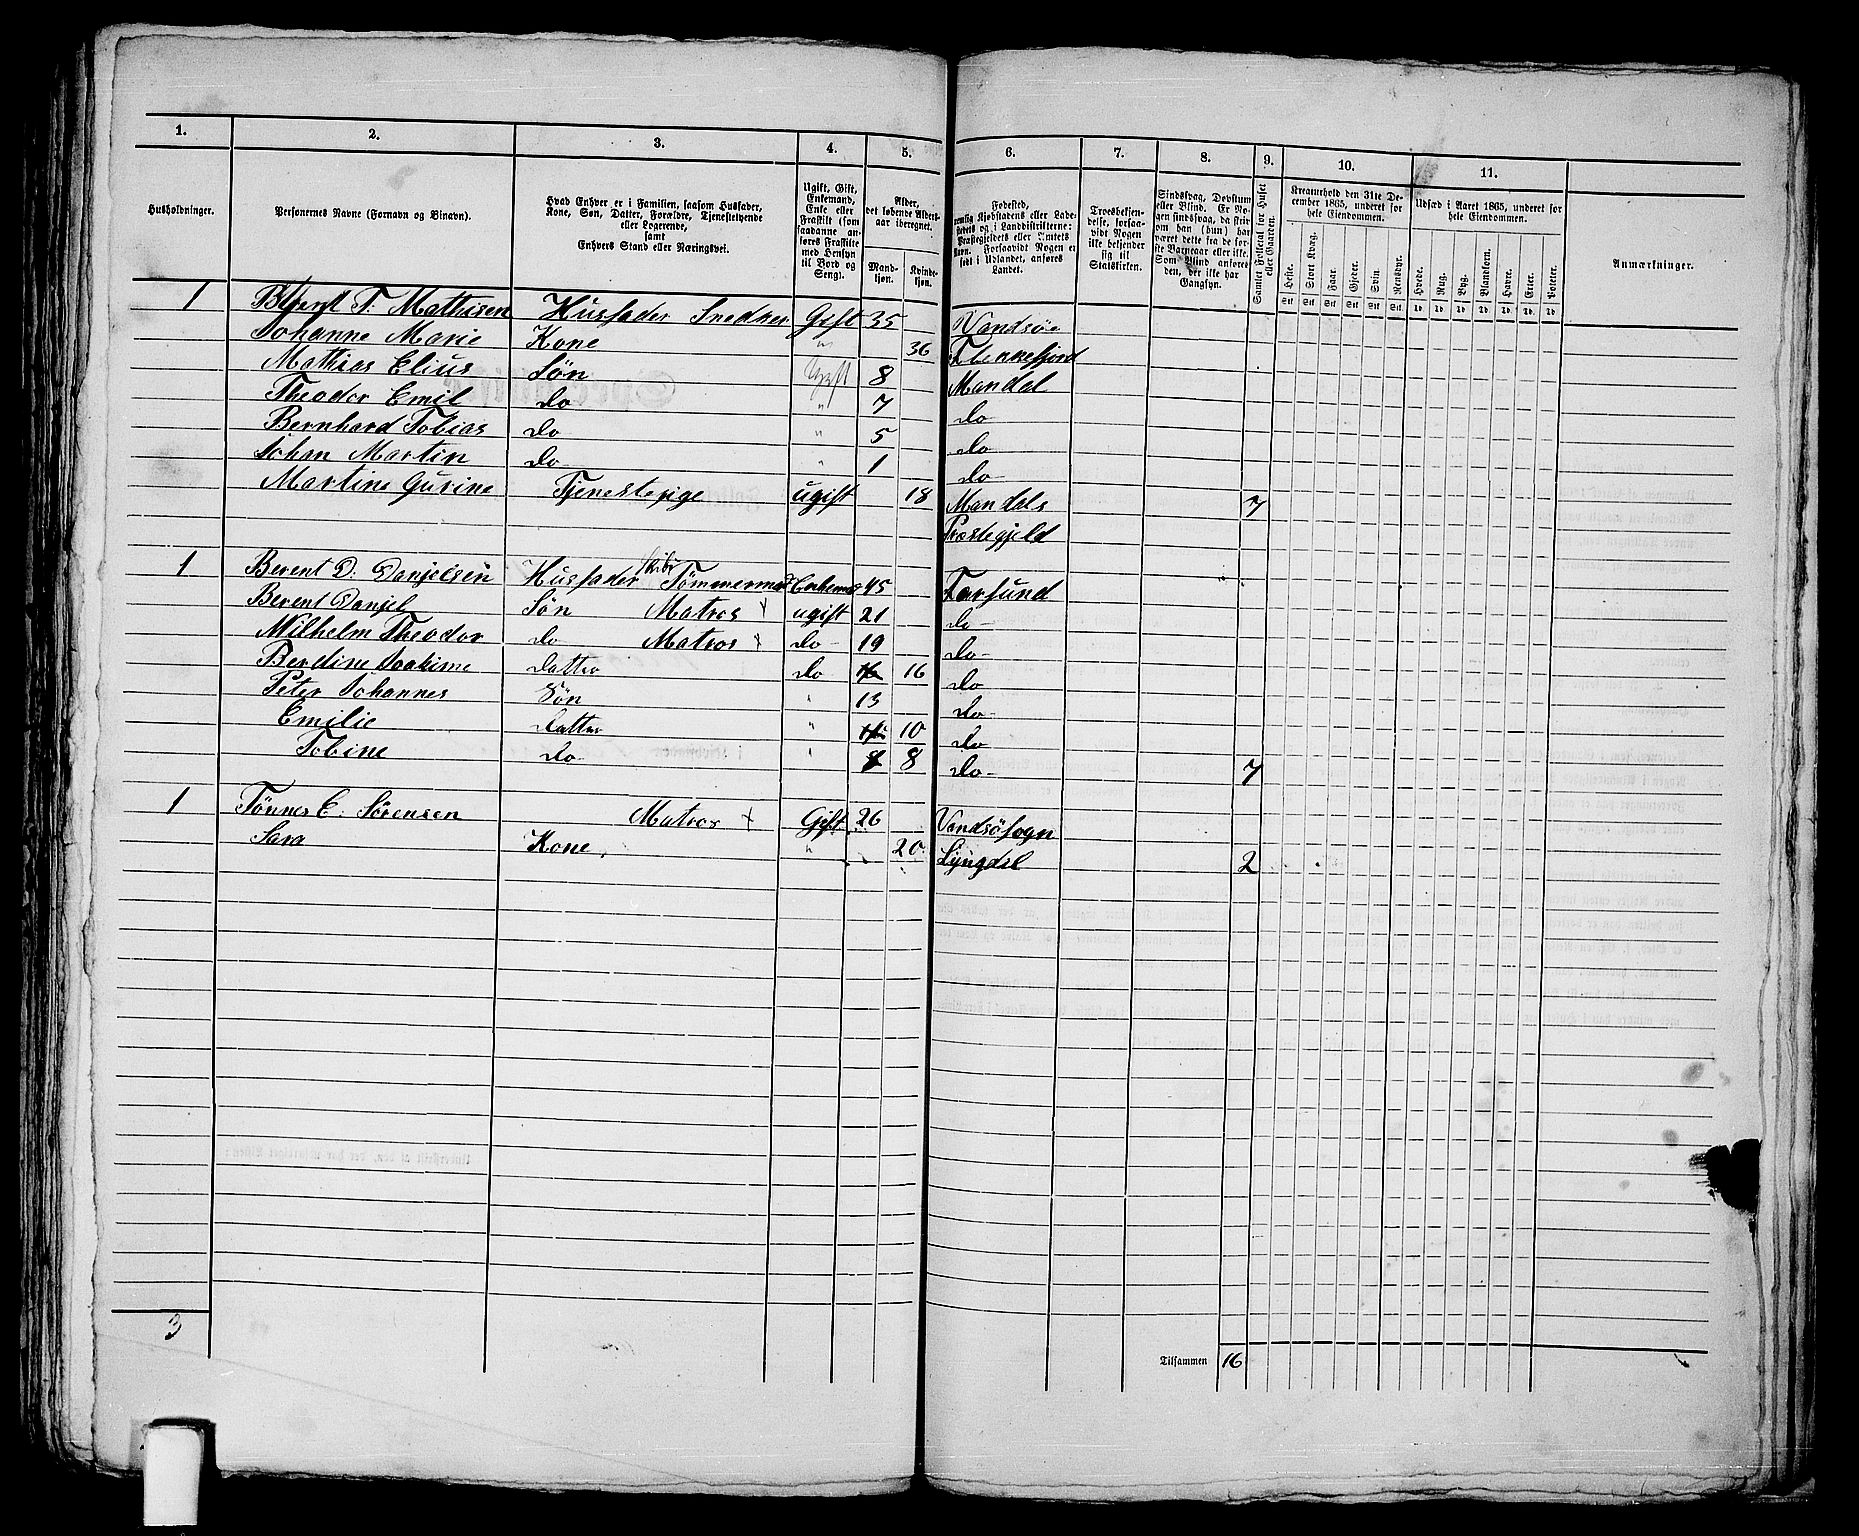 1. 2. 3. 4. 5. 6. 7. 8. 9. 10. 11.
Husholdninger.
Personernes Navne (Fornavn og Binavn).
Hvad Enhver er i Familien, saasom Husfader,
Kone, Søn, Datter, Forældre, Tjenestetyende
eller Logerende,
samt
Enhvers Stand eller Næringsvei.
Ugift, Gift,
Enkemand,
Enke eller
Fraskilt (som
saadanne an-
føres Fraskilte
med Hensyn
til Bord og
Seng).
Alder,
det løbende Alders-
aar iberegnet.
Mand-
kjøn.
Kvinde-
kjøn.
Fødested,
nemlig Kjøbstadens eller Lade-
stedets og i Landdistrikterne:
Præstegjeldets eller Amtets
Navn. Forsaavidt Nogen er
født i Udlandet, anføres
Landet.
Troesbekjen-
delse, forsaa-
vidt Nogen
ikke bekjender
sig til
Statskirken.
Sindssvag, Døvstum
eller Blind. Er No-
gen sindssvag, da skri-
ves om han (hun) har
været dette fra de før-
ste Barneaar eller ikke.
Som Blind anføres
den, der ikke har
Gangsyn.
Samlet Folketal for Huset
eller Gaarden.
Kreaturhold den 31te De-
cember 1865, underet for
hele Eiendommen.
Heste. Stort Kvæg. Faar. Gjeter. Svin. Rensdyr.
Stk Stk Stk Stk Stk Stk
Udsæd i Aaret 1865, underet for
hele Eiendommen.
Hvede. Rug. Byg. Blandkorn. Havre. Erter. Poteter.
Td. Td. Td. Td. Td. Td. Td.
Anmærkninger.
1 Berent T. Mathisen Husfader Snedker Gift 35 Vandsøe
Johanne Marie Kone " 36 Flekkefjord
Mathias Elius Søn Ugift 8 Mandal
Theodor Emil do " 7 do
Bernhard Tobias do " 5 do
Johan Martin do " 1 do
Martine Gurine Tjenestepige ugift 18 Mandals 7
Præstegjeld
1 Berent D. Danjelsen Husfader Skibs Tømmermd Enkemd 45 Farsund
Berent Danjel Søn Matros x ugift 21 do
Milhelm Theodor do Matros x do 19 do
Berdine Joakime datter do 16 16 do
Peter Johannes Søn " 13 do
Emilie datter " 10 10 do
Tobine do " 8 8 do 7
1 Tönnes C. Sörensen Matros x Gift 26 Vandsö sogn
Sara Kone " 20 Lyngdal 2
3
Tilsammen 16